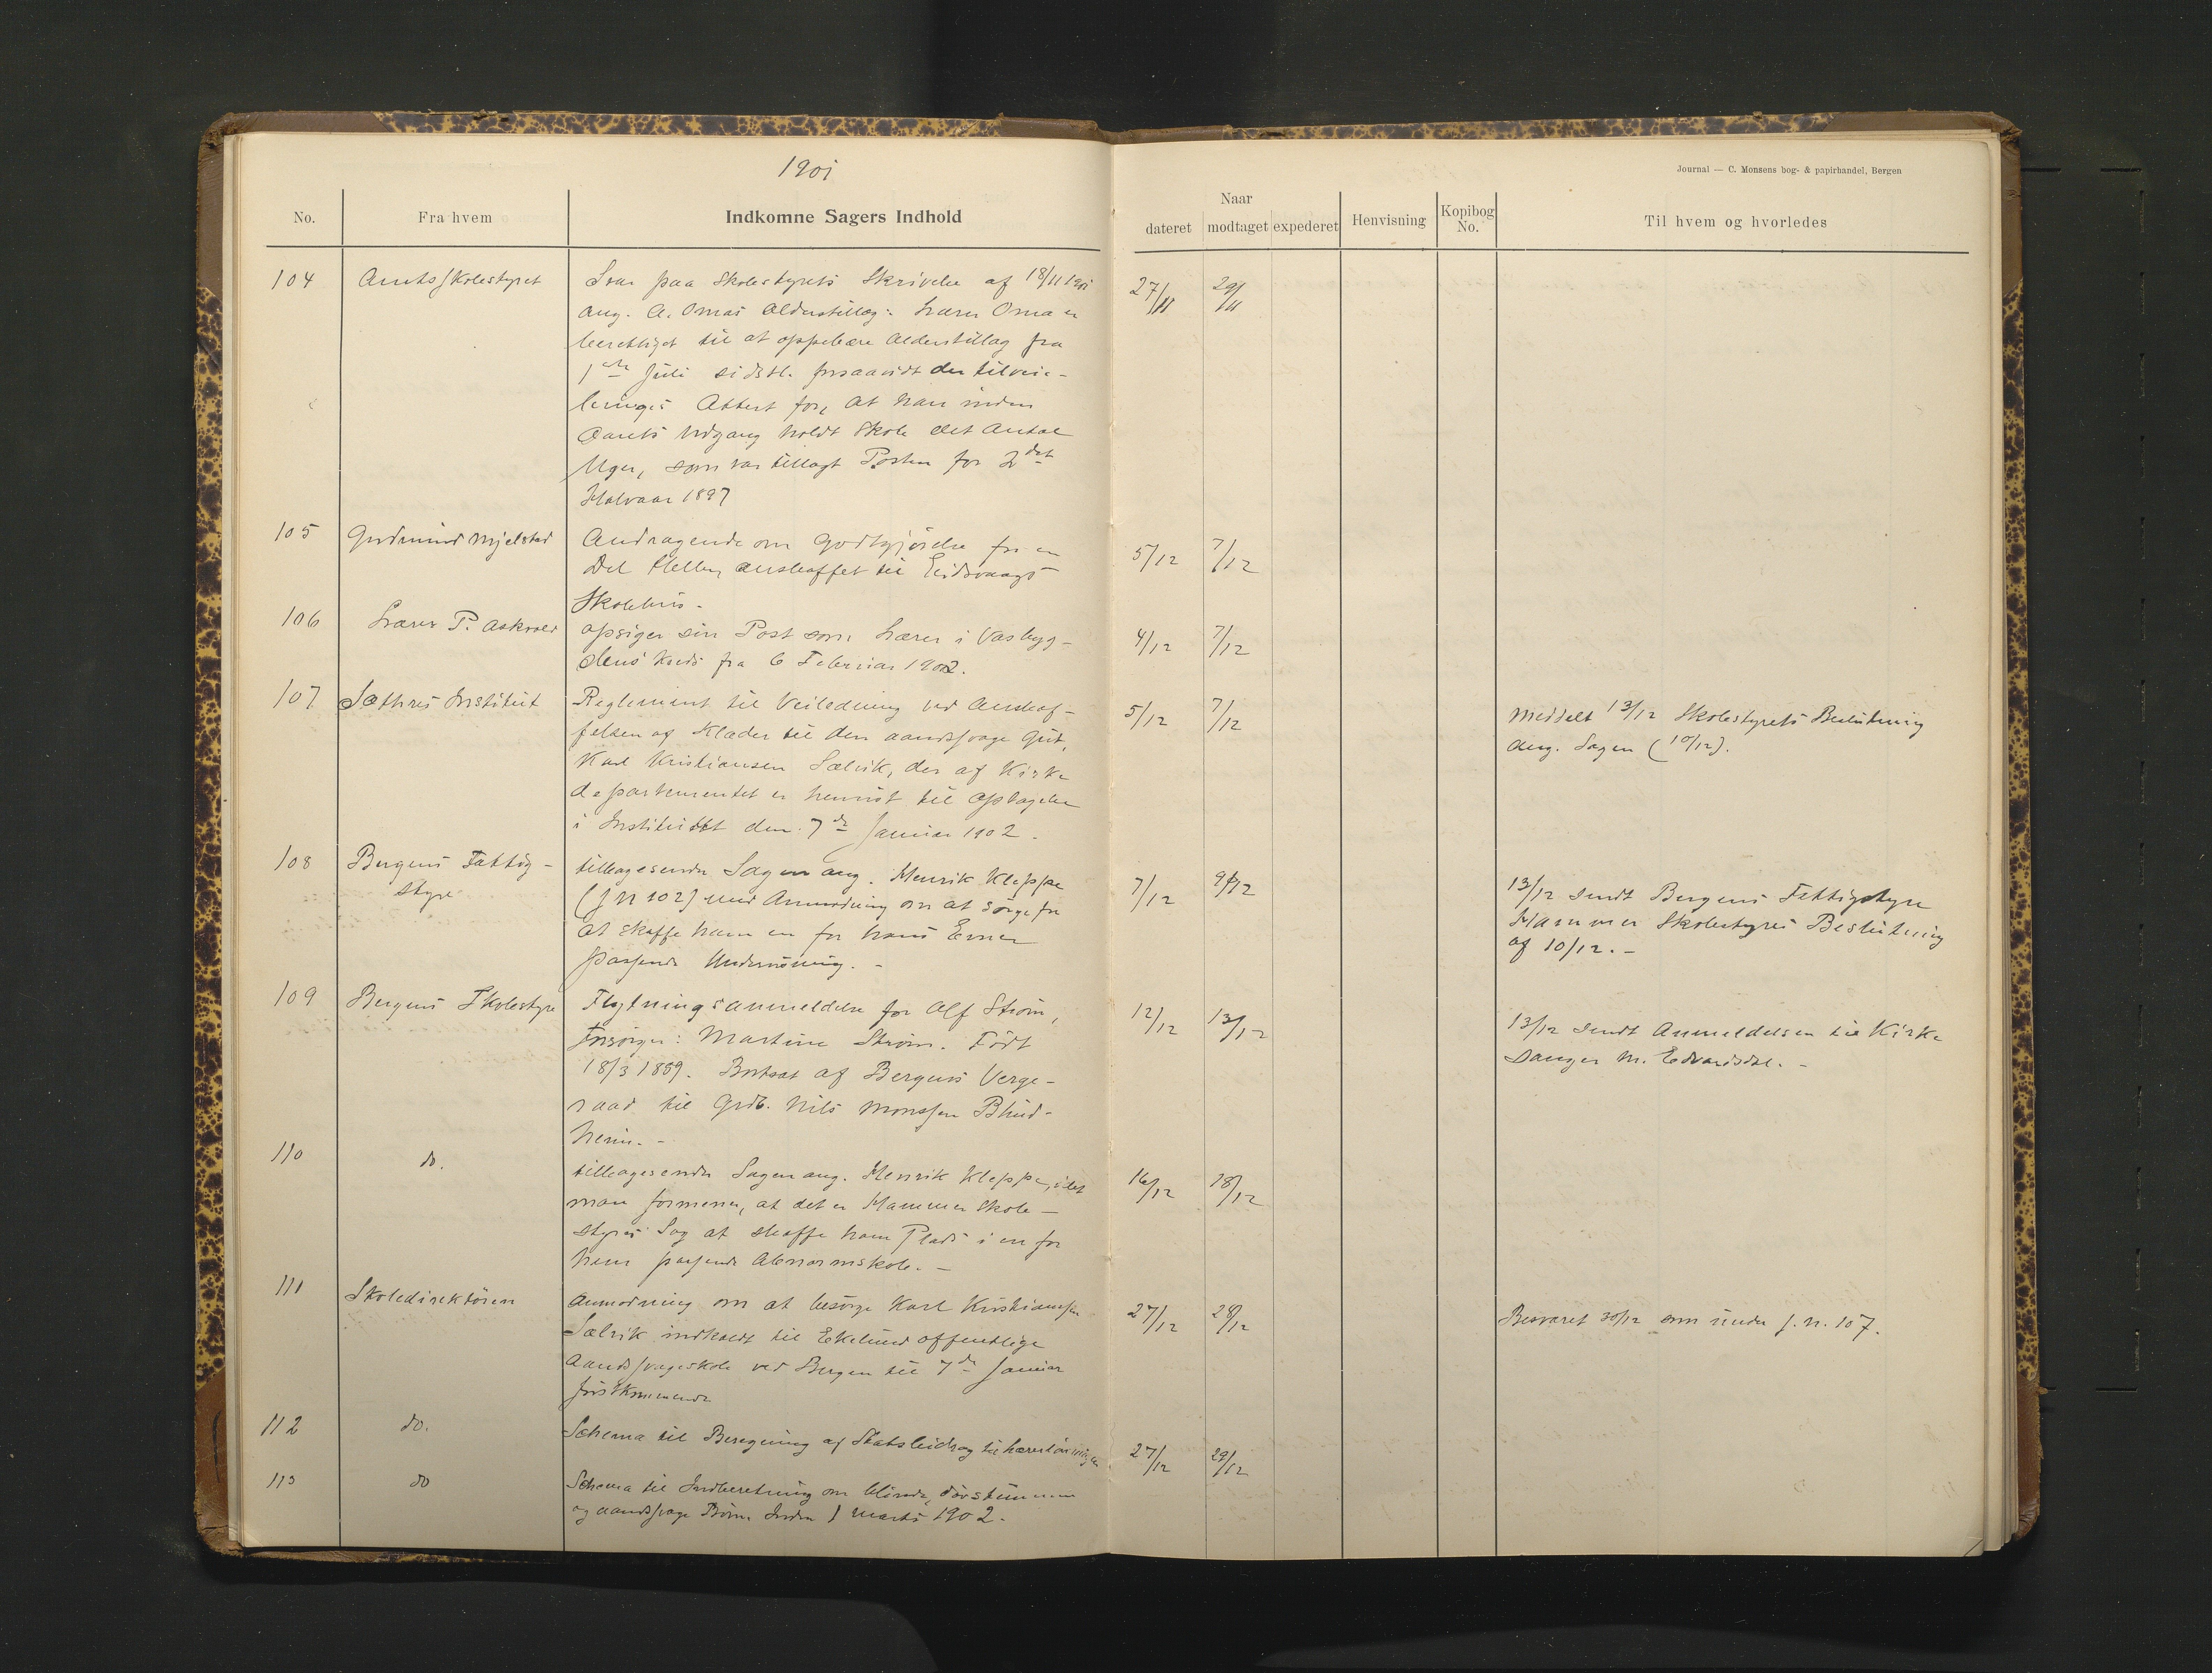 1901
Journal — C. Monsens bog- & papirhandel, Bergen
No.
Fra hvem
Indkomne Sagers Indhold
Naar
dateret
modtaget
expederet
Henvisning
Kopibog
No.
Til hvem og hvorledes
104 Amtsskolestyret Svar paa Skolestyrets Skrivelse af 18/11 1901 27/11 29/11
ang. A. Omas Alderstillæg: Lærer Oma er
berettiget til at oppebære Alderstillæg fra
1ste Juli sidstl. forsaavidt der tilveie-
bringes Attest for, at han inden
Aarets Udgang holdt Skole det Antal
Uger, som var tillagt Posten for 2det
Halvaar 1897
105 Gudmund Mjelstad Andragende om Godtgjörelse for en 5/12 7/12
Del anskaffet til Eidsvaags
Skolehus.
106 Lærer P. Askvold opsiger sin Post som Lærer i Vasbyg- 4/12 7/12
dens Kreds fra 6 Februar 1902.
107 Sæthres Institut Reglement til Veiledning ved Anskaf- 5/12 7/12 Meddelt 13/12 Skolestyrets Beslutning
felsen af Klæder til den aandssvage Gut, ang. Sagen (10/12).
Karl Kristiansen Sælvik, der af Kirke
departementet er henvist til Optagelse
i Institutet den 7de Januar 1902.
108 Bergens Fattig- tilbagesender Sagen ang. Henrik Kleppe 7/12 9/12 13/12 sendt Bergens Fattigstyre
styre (J N 102) med Anmodning om at sörge for Hammer Skolestyres Beslutning
at skaffe ham en for hans Evner af 10/12. -
passende Undervisning. -
109 Bergens Skolestyre Flytningsanmeldelse for Alf Ström, 12/12 13/12 13/12 sendt Anmeldelsen til Kirke
Forsörger: Martine Ström. Födt sanger M. Edvardsdal. -
18/3 1889. Bortsat af Bergens Verge-
raad til Grdb. Nils Monssen Blind-
heim. -
110 do. tilbagesender Sagen ang. Henrik Kleppe, idet 16/12 18/12
man formener, at det er Hammer Skole-
styres Sag at skaffe ham Plads i en for
ham passende Abnormskole. -
111 Skoledirektören Anmodning om at besörge Karl Kristiansen 27/12 28/12 Besvaret 30/12 som under J. N. 107.
Sælvik indkaldt til Ekelund offentlige
Aandssvageskole ved Bergen til 7de Januar
förstkommende
112 do. Schema til Beregning af Statsbidrag til Lærerlönningen 27/12 29/12
113 do Schema til Indberetning om blinde, dövstumme
og aandssvage Börn. Inden 1 Marts 1902.